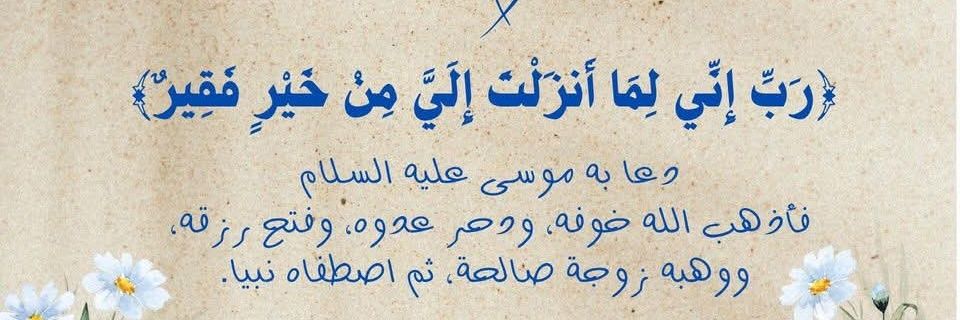 ﴿رَبِّ إِنِّي لِمَا أَنزَلْتَ إِلَيَّ مِنْ خَيْرٍ فَقِيرٌ﴾
دعا به موسى عليه السلام
فأذهب الله خوفه، ودحر عدوه، وفتح رزقه،
ووهبه زوجة صالحة، ثم اصطفاه نبيا.